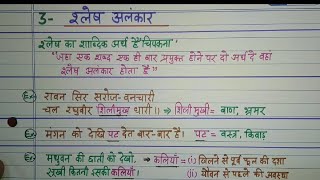 3- श्लेष अलंकार
श्लेष का शाब्दिक अर्थ है 'चिपकना'
"जहां एक शब्द एक ही बार प्रयुक्त होने पर दो अर्थ दे वहां
श्लेष अलंकार होता है"
Ex:- रावन सिर सरोज-बनचारी
चल रघुबीर शिलीमुख धारी।। ⇒ शिलीमुखी= बाण, भ्रमर
Ex:- मंगन को देखि पट देत बार-बार है। पट= वस्त्र, किवाड़
Ex:- मधुबन की छाती को देखो, ⇒ कलियाँ= (i) खिलने से पूर्व फूल की दशा
सूखी कितनी इसकी कलियाँ। (ii) यौवन से पहले की अवस्था